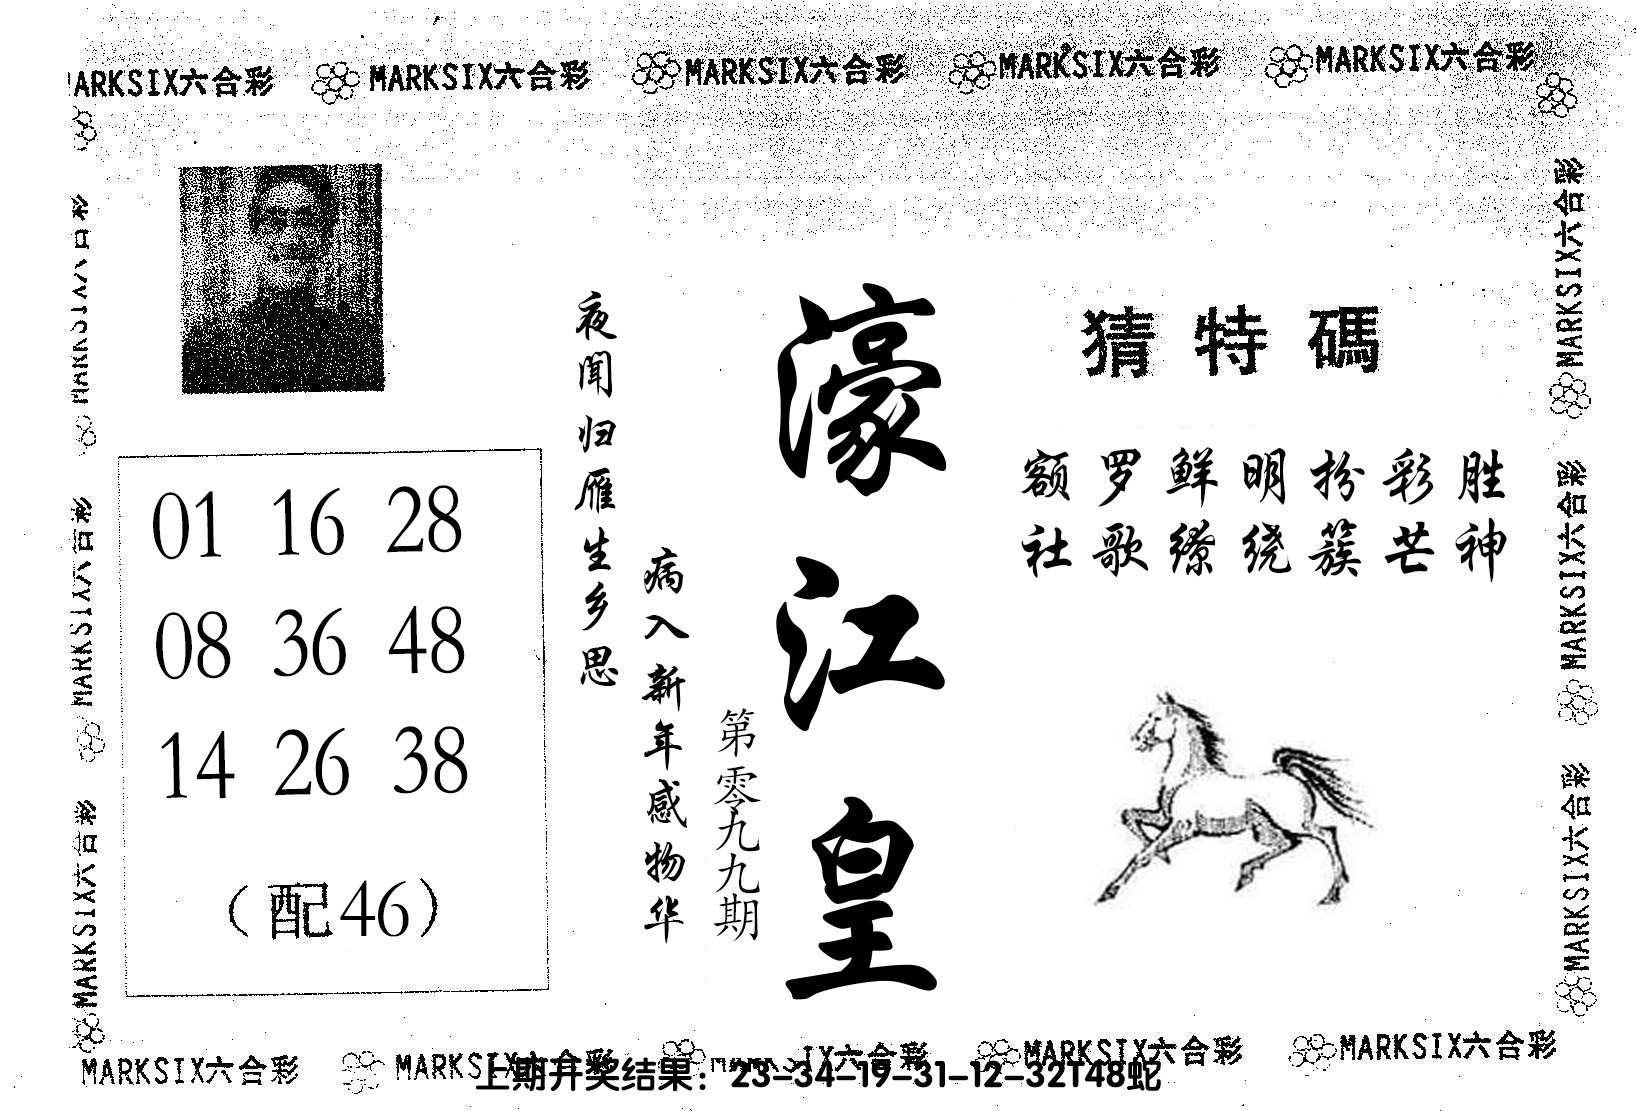 MARKSIX六合彩 MARKSIX六合彩 MARKSIX六合彩 MARKSIX六合彩 MARKSIX六合彩
猜特碼
额罗鲜明扮彩胜
社歌缭绕簇芒神
濠江皇
第零九九期
夜闻归雁生乡思
病入新年感物华
01 16 28
08 36 48
14 26 38
（配46）
MARKSIX六合彩
MARKSIX六合彩
MARKSIX六合彩
MARKSIX六合彩
MARKSIX六合彩
MARKSIX六合彩
MARKSIX六合彩 MARKSIX六合彩 IX六合彩 MARKSIX六合彩 MARKSIX六合彩
上期开奖结果：23-34-19-31-12-32T48蛇